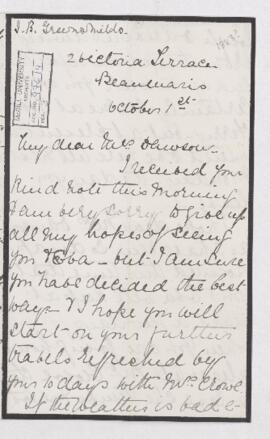 J. B. Greenshields.
1883?
2 Victoria Terrace
Beaumaris
October 1st
McGILL UNIVERSITY
ARCHIVES
ACC. NO.
My dear Mrs Dawson
I received your
kind note this morning
I am very sorry to give up
all my hopes of seeing
you & Eva - but I am sure
you have decided the best
way - & I hope you will
start on your further
travels refreshed by
your 10 days with Mrs Crowe
If the weather is bad &